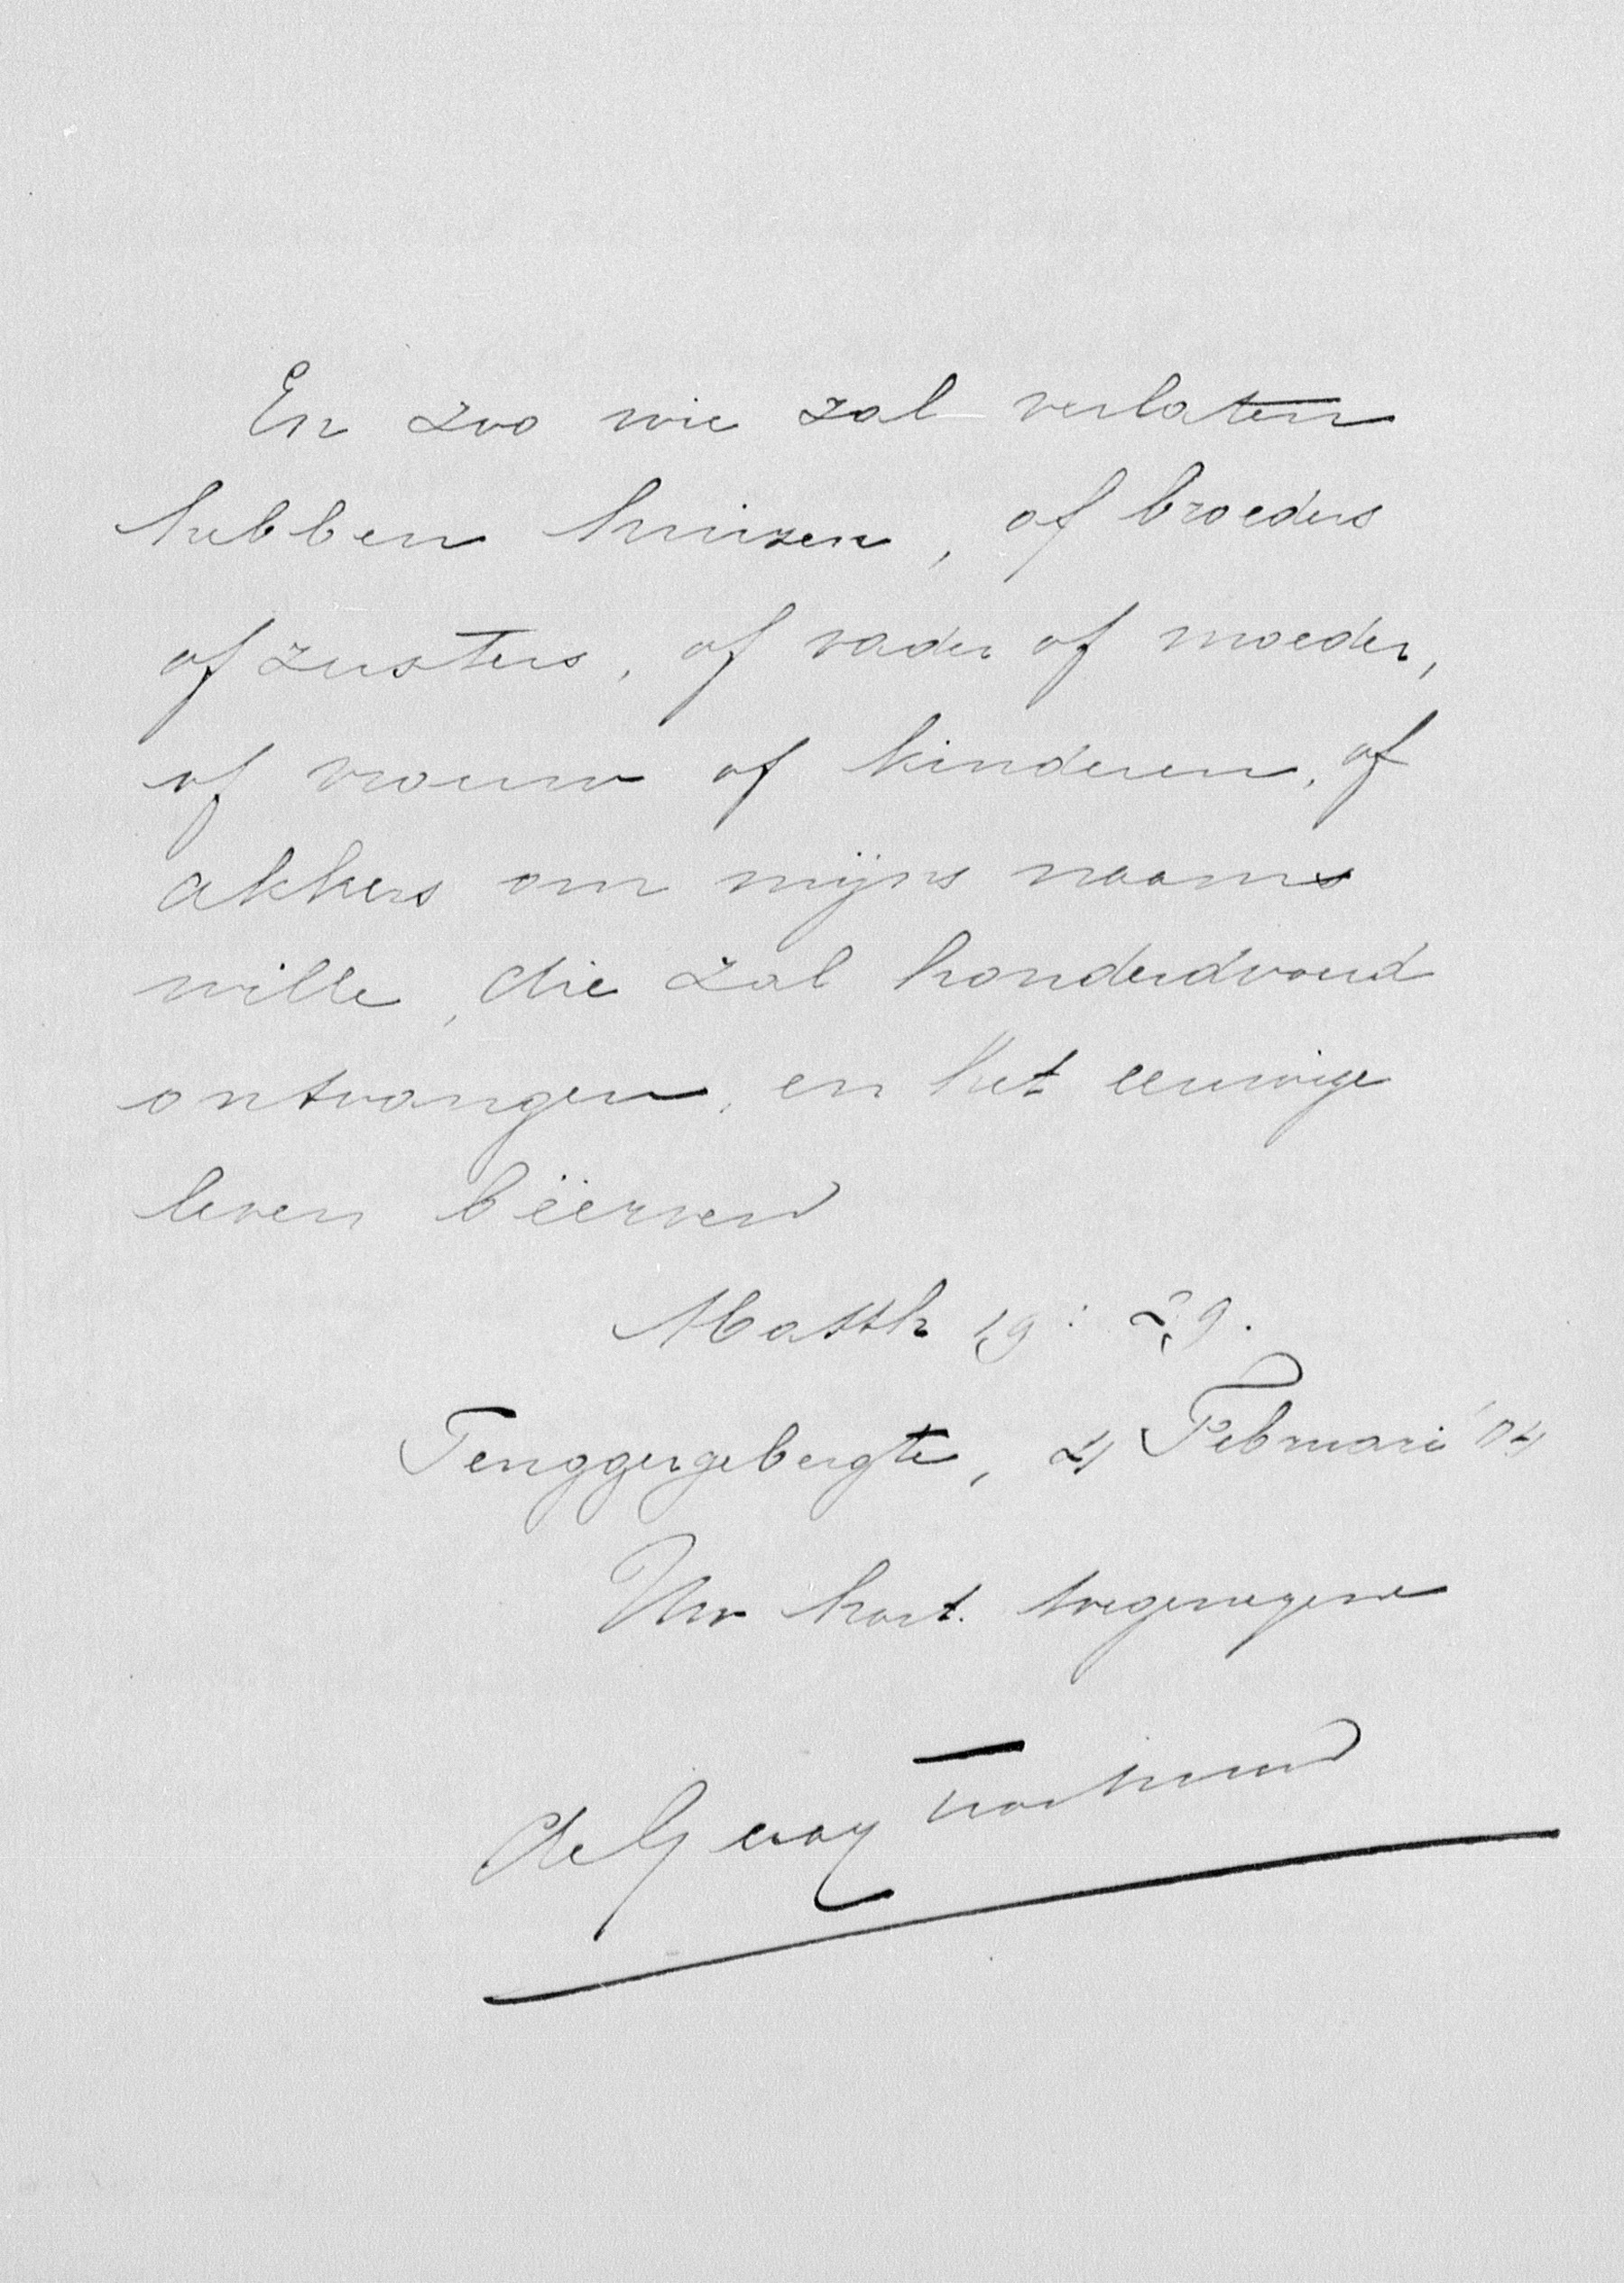 En zoo wie zal verlaten
hebben huizen, of broeders
of zusters, of vader of moeder,
of vrouw of kinderen, of
akkers om mijns naams
wille, die zal honderdvoud
ontvangen, en het eeuwige
leven beërven
Matth 19: 29.
Tenggergebergte, 4 Februari '04
Uw hart. toegenegene